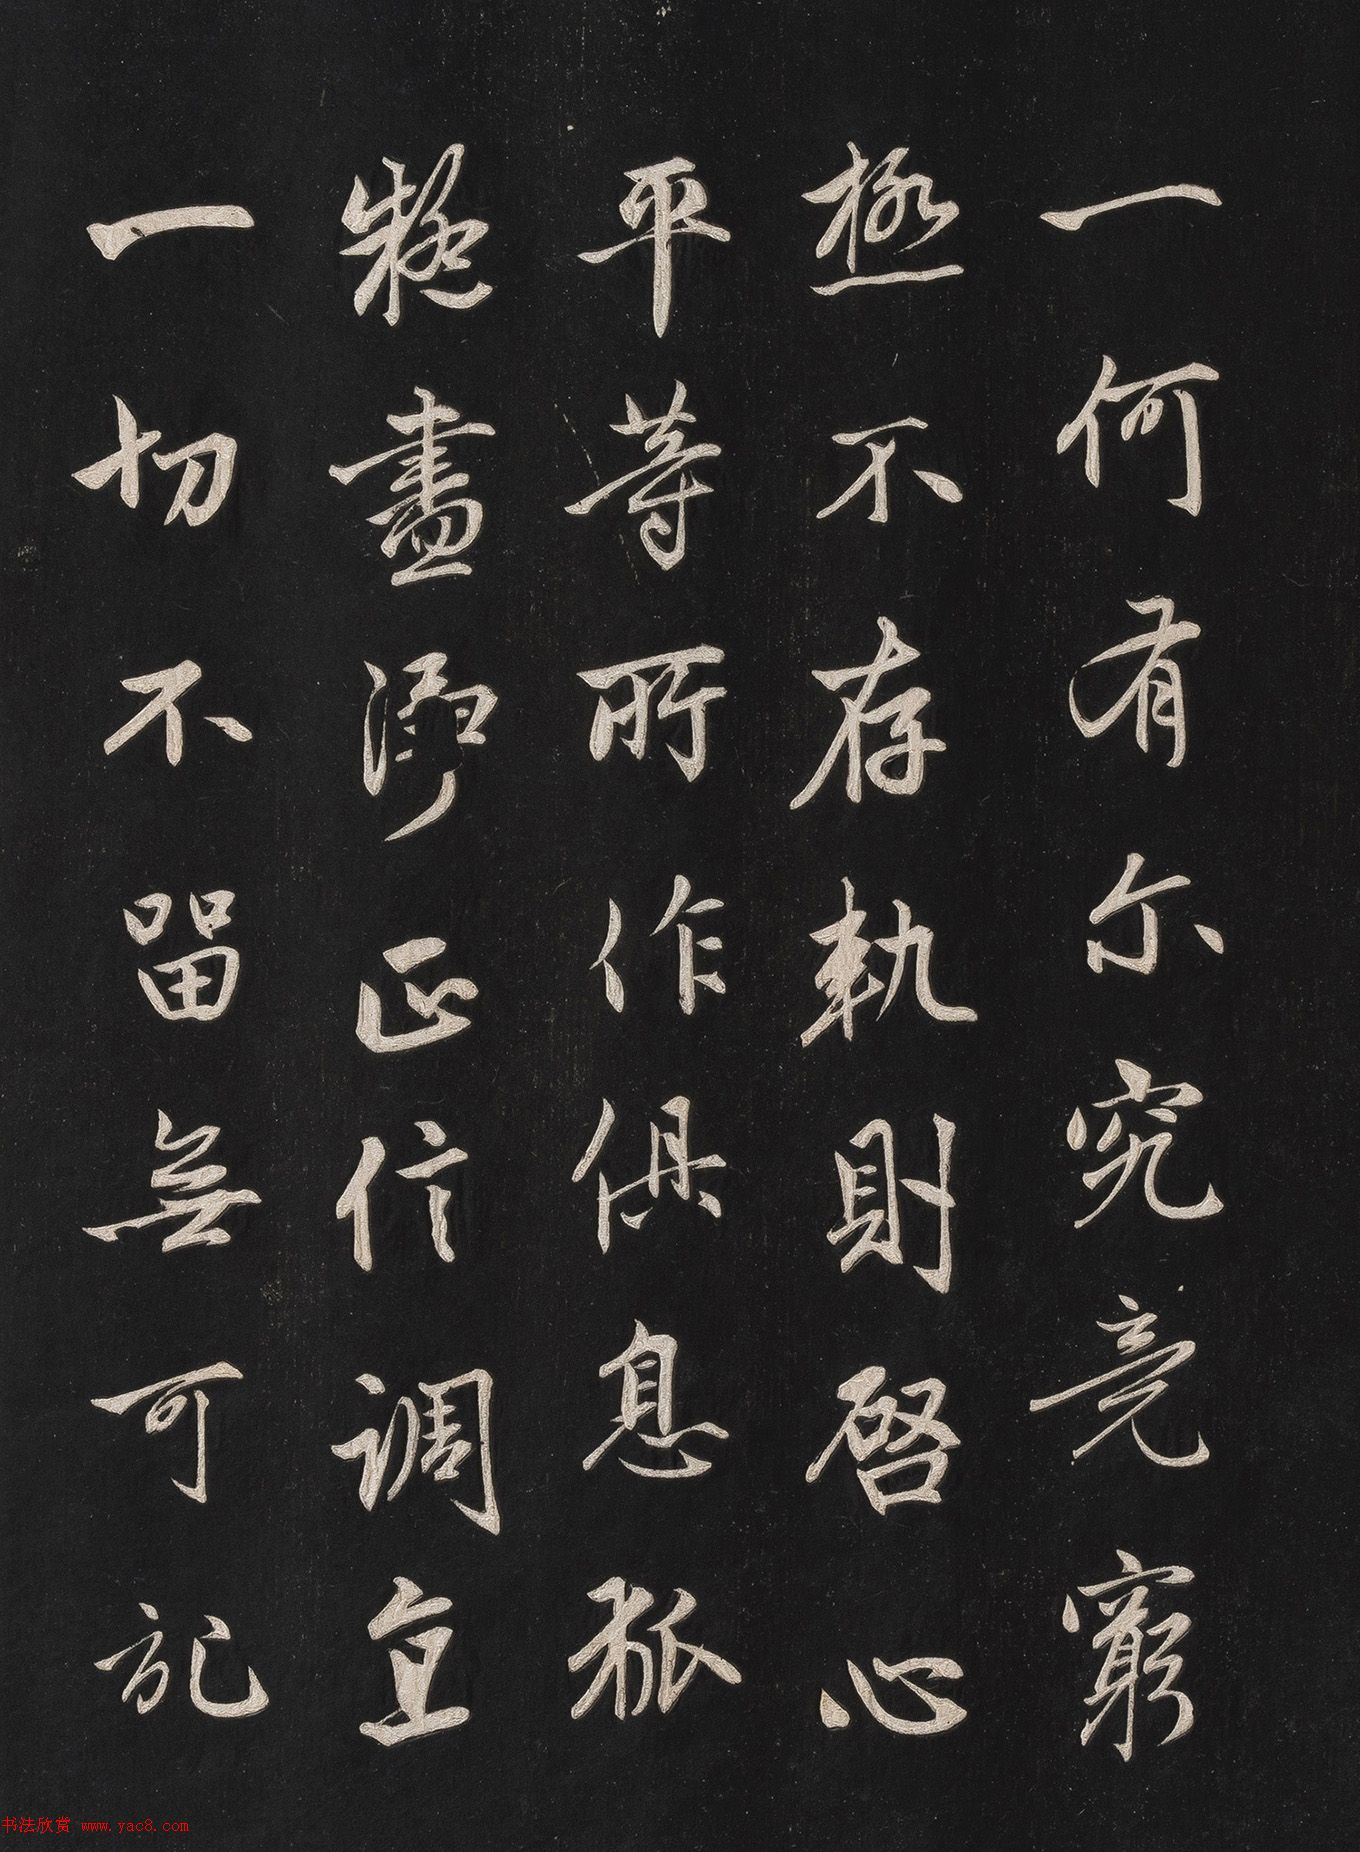 一何有尔究竟窮
極不存軌則啓心
平等所作俱息狐
疑盡淨正信調直
一切不留無可記
书法欣赏 www.yac8.com